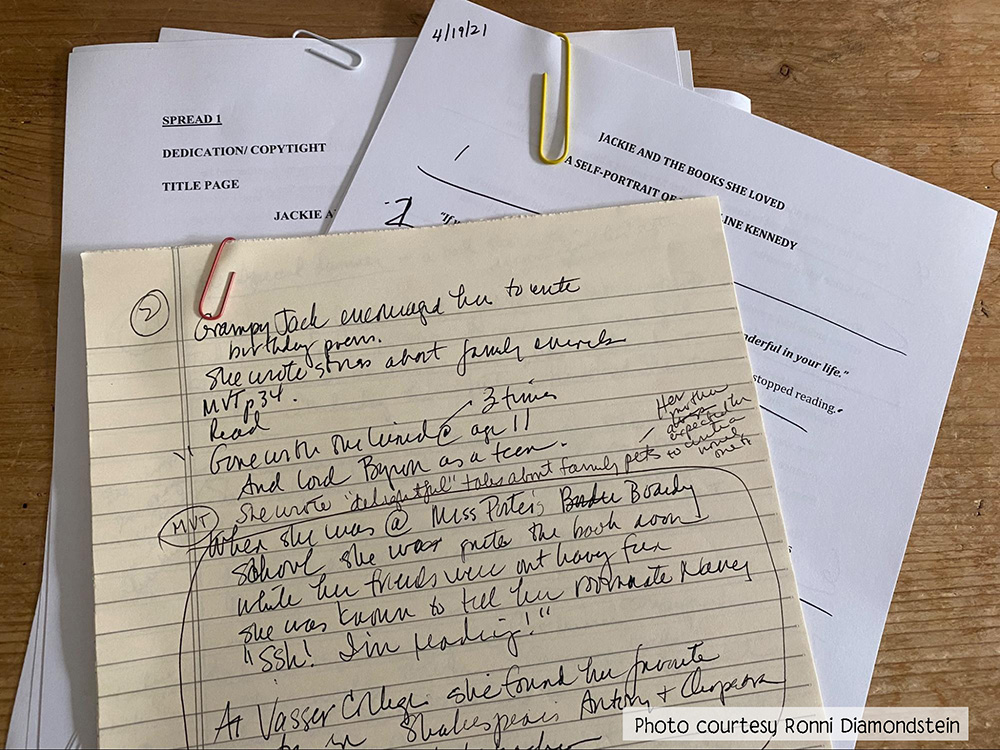 4/19/21
SPREAD 1
DEDICATION/ COPYTIGHT
TITLE PAGE
JACKIE A
JACKIE AND THE BOOKS SHE LOVED
A SELF-PORTRAIT OF
LINE KENNEDY
1
2
"If
nderful in your life."
stopped reading."
2
Grampy Jack encouraged her to write
birthday poems.
She wrote stories about family
MVT p34.
Read
3 times
Gone with the Wind @ age 11
And Lord Byron as a teen.
Her
mother
expected her
to write a
novel
one
She wrote "delightful" tales about family pets
MVT
When she was @ Miss Porter's Boarding
School she was quite the book worm
while her friends were out having fun
she was known to tell her roommate Nancy
"Ssh! I'm reading!"
At Vasser College she found her favorite
in Shakespeare's Antony + Cleopatra
Photo courtesy Ronni Diamondstein